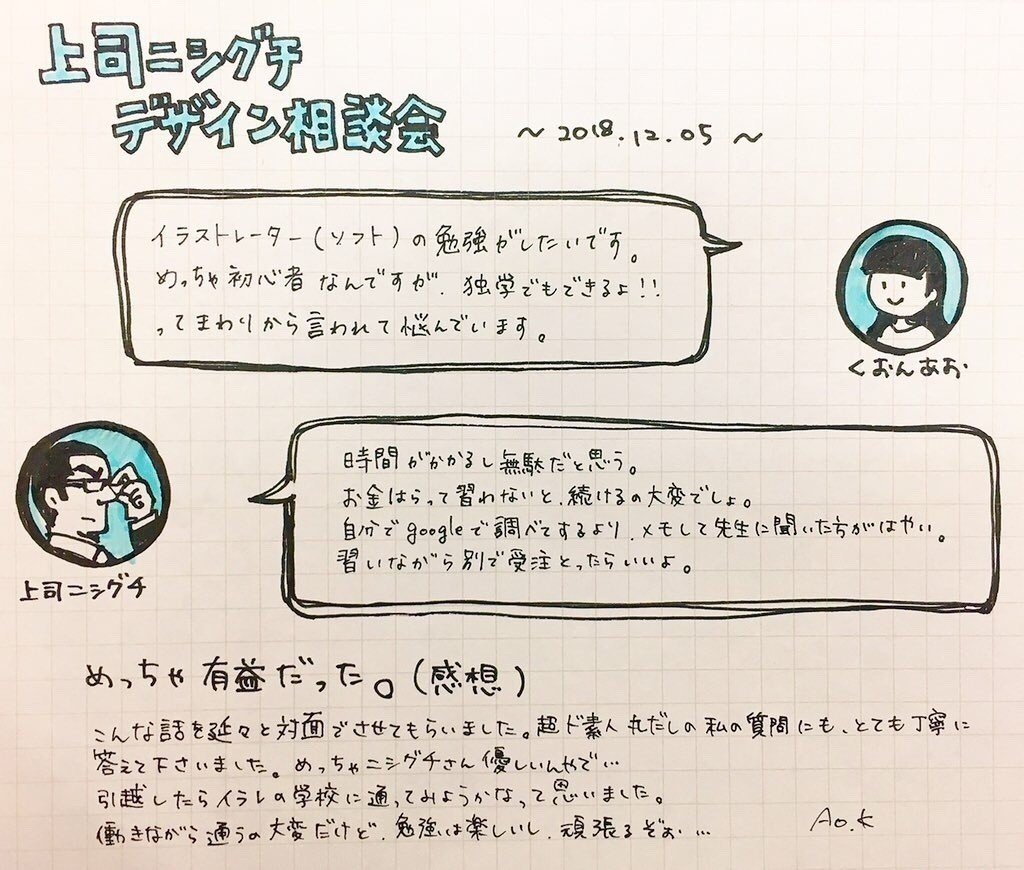 上司ニシグチ
デザイン相談会
～2018.12.05～
イラストレーター(ソフト)の勉強がしたいです。
めっちゃ初心者なんですが、独学でもできるよ!!
ってまわりから言われて悩んでいます。
くおんあお
時間がかかるし無駄だと思う。
お金はらって習わないと、続けるの大変でしょ。
自分でgoogleで調べてするより、メモして先生に聞いた方がはやい。
習いながら別で受注とったらいいよ。
上司ニシグチ
めっちゃ有益だった。(感想)
こんな話を延々と対面でさせてもらいました。超ド素人丸だしの私の質問にも、とても丁寧に
答えて下さいました。めっちゃニシグチさん優しいんやで…
引越したらイラレの学校に通ってみようかなって思いました。
働きながら通うの大変だけど、勉強は楽しいし、頑張るぞぉ…
Ao.K